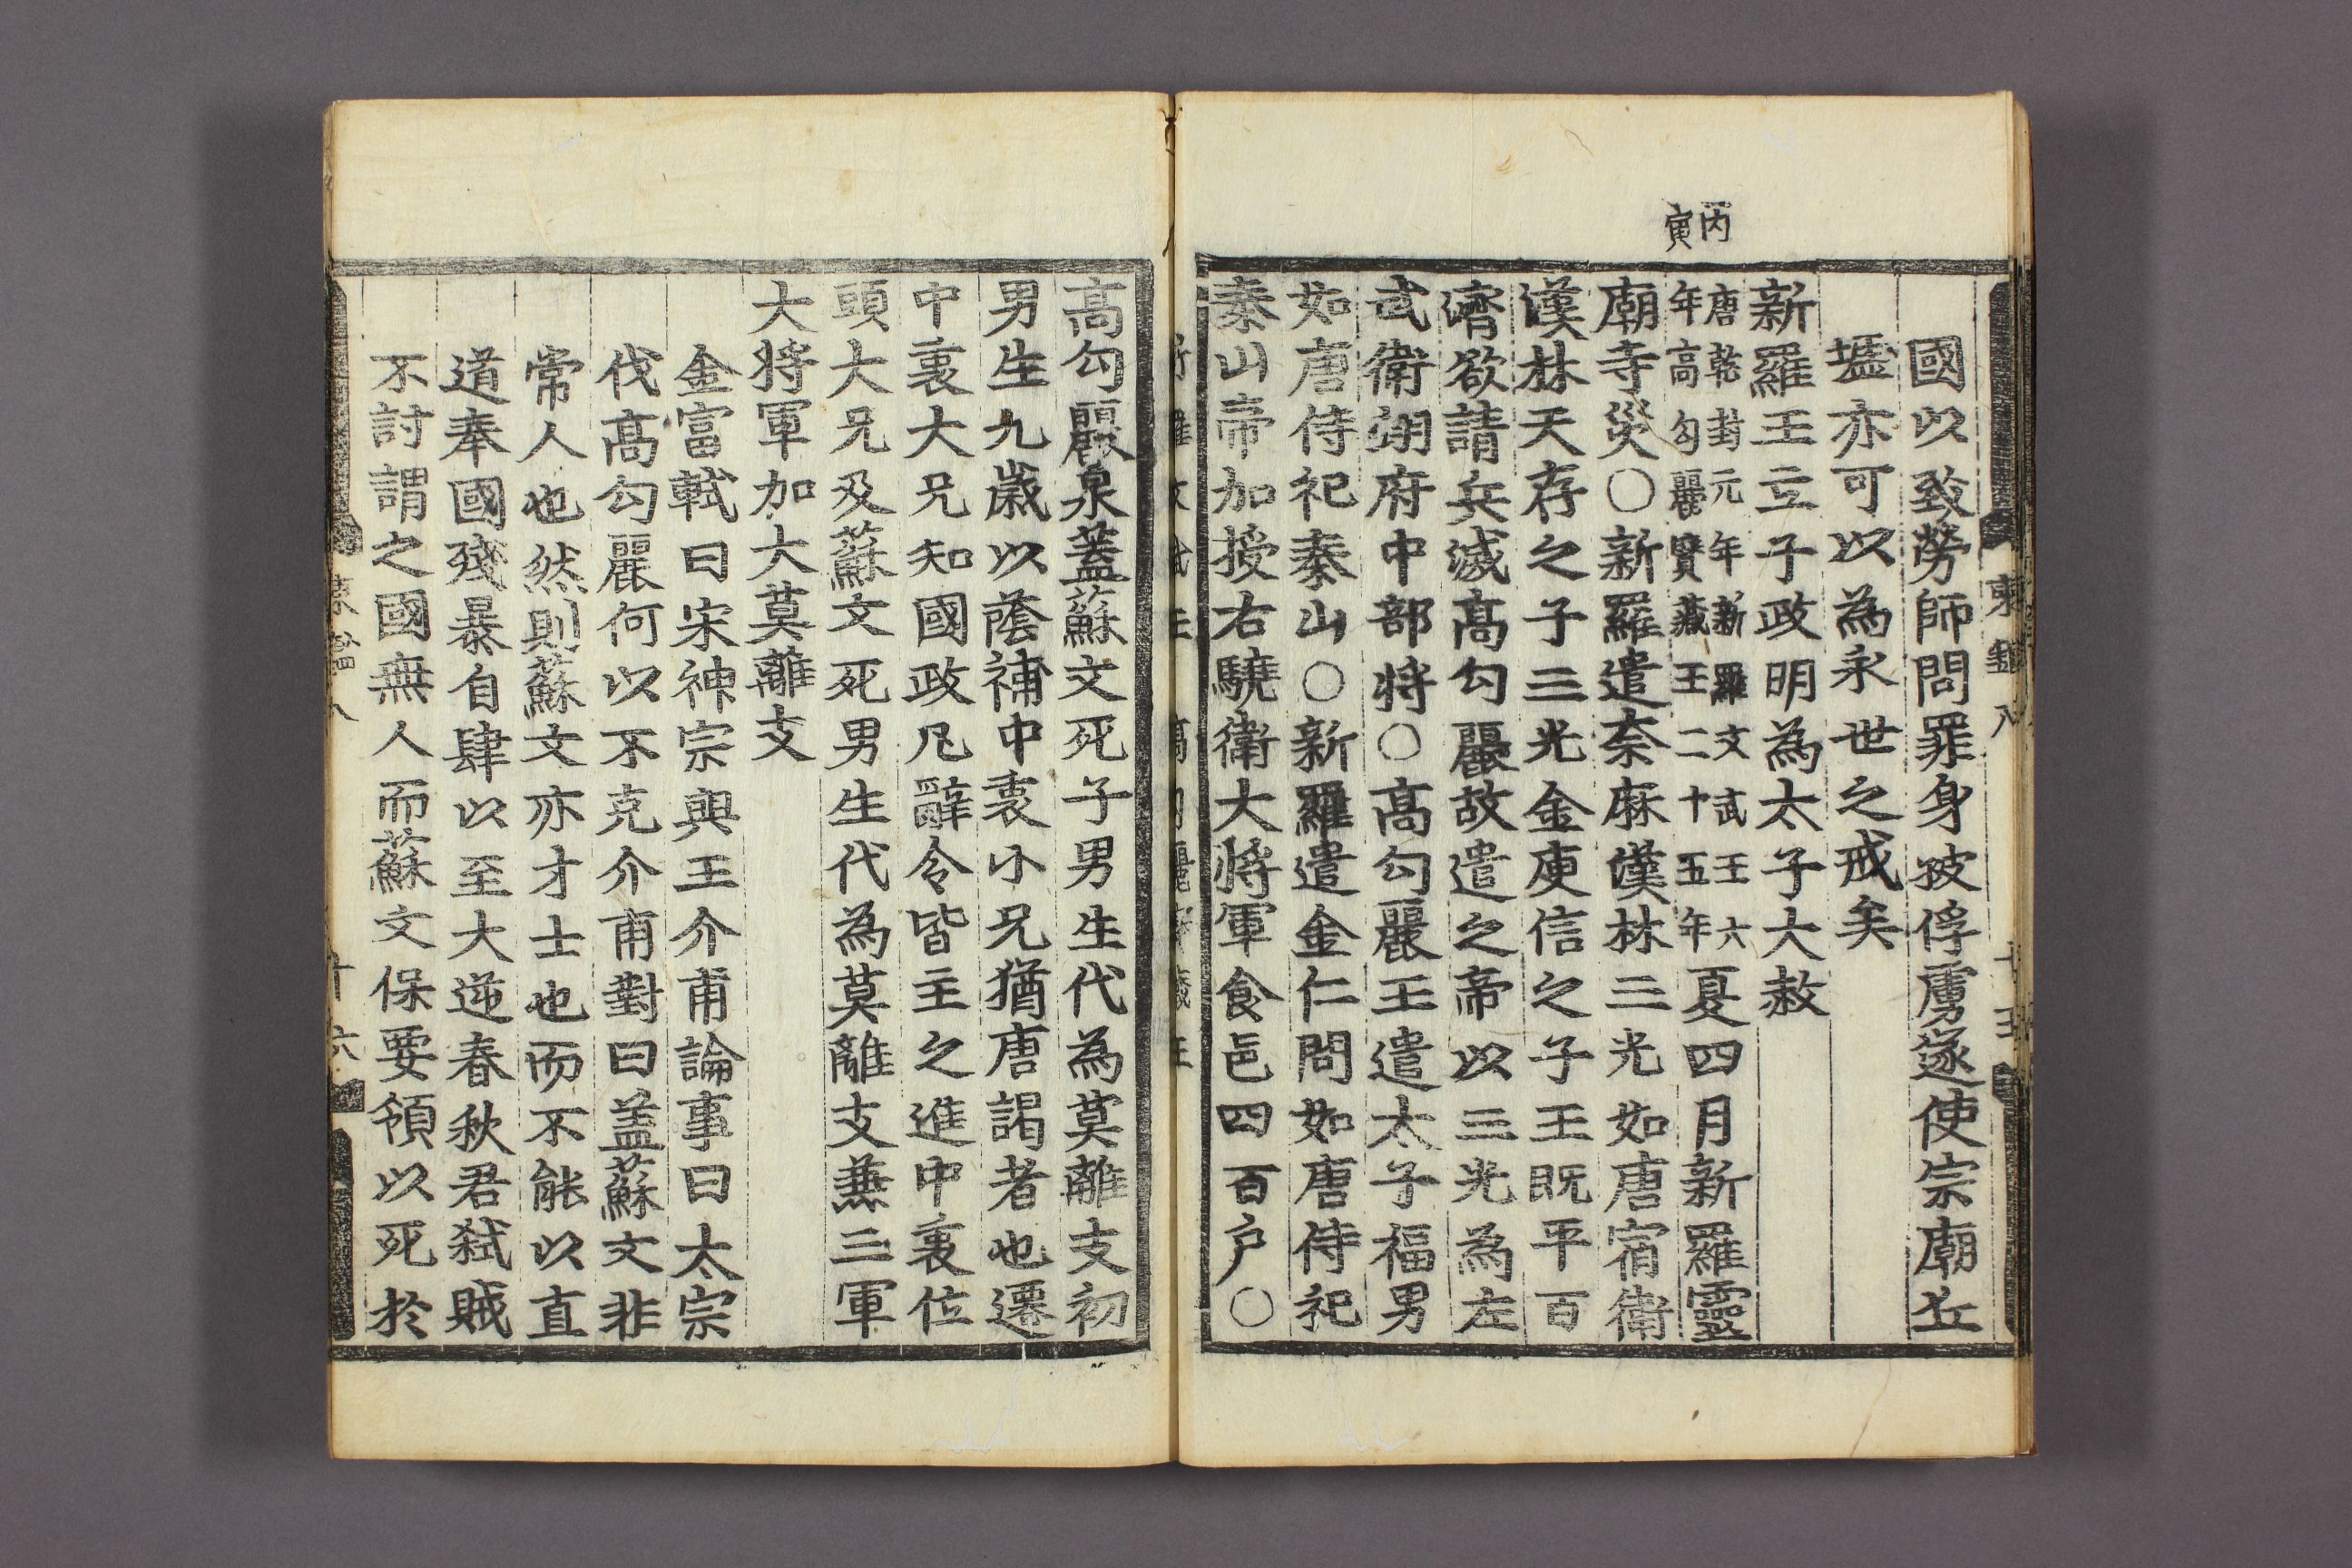 丙寅
國以致勞師問罪身被俘虜遂使宗廟丘
墟亦可以為永世之戒矣
新羅王立子政明為太子大赦
唐乾封元年新羅文武王六
年高勾麗寶藏王二十五年
夏四月新羅靈
廟寺災〇新羅遣奈麻漢林三光如唐宿衛
漢林天存之子三光金庾信之子王既平百
濟欲請兵滅高勾麗故遣之帝以三光為左
武衛翊府中部將〇高勾麗王遣太子福男
如唐侍祀泰山〇新羅遣金仁問如唐侍祀
泰山帝加授右驍衛大將軍食邑四百戶〇
高勾麗泉蓋蘇文死子男生代為莫離支初
男生九歲以蔭補中裏小兄猶唐謁者也遷
中裏大兄知國政凡辭令皆主之進中裏位
頭大兄及蘇文死男生代為莫離支兼三軍
大將軍加大莫離支
金富軾曰宋神宗與王介甫論事曰太宗
伐高勾麗何以不克介甫對曰盖蘇文非
常人也然則蘇文亦才士也而不能以直
道奉國殘暴自肆以至大逆春秋君弑賊
不討謂之國無人而蘇文保要領以死於